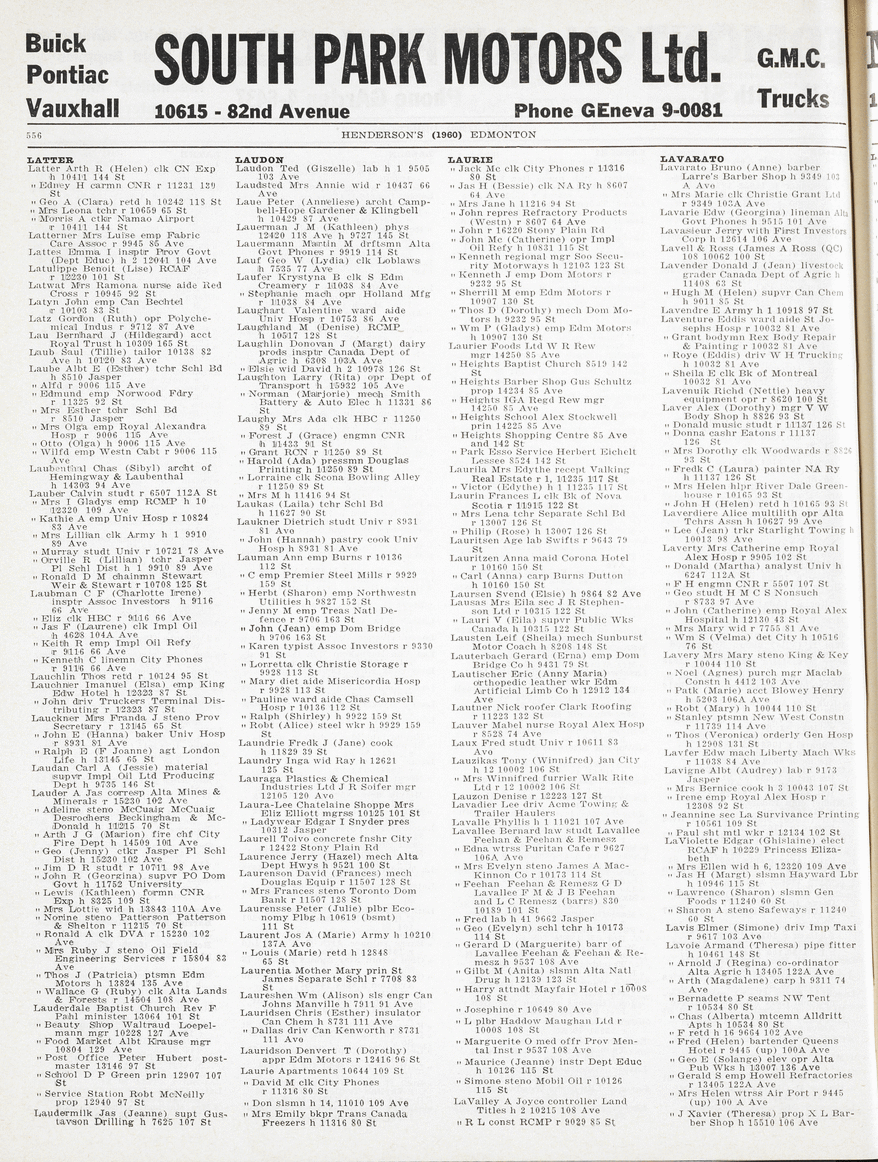 Buick
Pontiac
Vauxhall
SOUTH PARK MOTORS Ltd.
10615 - 82nd Avenue
Phone GEneva 9-0081
G.M.C.
Trucks
556
HENDERSON'S (1960) EDMONTON
LATTER
Latter Arth R (Helen) clk CN Exp
h 10411 144 St
" Edney H carmn CNR r 11231 139
St
" Geo A (Clara) retd h 10242 118 St
" Mrs Leona tchr r 10659 65 St
" Morris A clkr Namao Airport
r 10411 144 St
Latterner Mrs Luise emp Fabric
Care Assoc r 9945 85 Ave
Lattes Emma I insptr Prov Govt
(Dept Educ) h 2 12041 104 Ave
Latulippe Benoit (Lise) RCAF
r 12230 101 St
Latwat Mrs Ramona nurse aide Red
Cross r 10945 92 St
Latyn John emp Can Bechtel
r 10103 83 St
Latz Gordon (Ruth) opr Polyche-
mical Indus r 9712 87 Ave
Lau Bernhard J (Hildegard) acct
Royal Trust h 10309 165 St
Laub Saul (Tillie) tailor 10138 82
Ave h 10120 83 Ave
Laube Albt E (Esther) tchr Schl Bd
h 8510 Jasper
" Alfd r 9006 115 Ave
" Edmund emp Norwood Fdry
r 11325 92 St
" Mrs Esther tchr Schl Bd
r 8510 Jasper
" Mrs Olga emp Royal Alexandra
Hosp r 9006 115 Ave
" Otto (Olga) h 9006 115 Ave
" Wilfd emp Westn Cabt r 9006 115
Ave
Laubenthal Chas (Sibyl) archt of
Hemingway & Laubenthal
h 14303 94 Ave
Lauber Calvin studt r 6507 112A St
" Mrs I Gladys emp RCMP h 10
12320 109 Ave
" Kathie A emp Univ Hosp r 10824
83 Ave
" Mrs Lillian clk Army h 1 9910
89 Ave
" Murray studt Univ r 10721 78 Ave
" Orville R (Lillian) tchr Jasper
Pl Schl Dist h 1 9910 89 Ave
" Ronald D M chainmn Stewart
Weir & Stewart r 10708 125 St
Laubman C F (Charlotte Irene)
insptr Assoc Investors h 9116
66 Ave
" Eliz clk HBC r 9116 66 Ave
" Jas F (Laurene) clk Impl Oil
h 4628 104A Ave
" Keith R emp Impl Oil Refy
r 9116 66 Ave
" Kenneth C linemn City Phones
r 9116 66 Ave
Lauchlin Thos retd r 10124 95 St
Lauchner Imanuel (Elsa) emp King
Edw Hotel h 12323 87 St
" John driv Truckers Terminal Dis-
tributing r 12323 87 St
Lauckner Mrs Franda J steno Prov
Secretary r 13145 65 St
" John E (Hanna) baker Univ Hosp
r 8931 81 Ave
" Ralph E (F Joanne) agt London
Life h 13145 65 St
Laudan Carl A (Jessie) material
supvr Impl Oil Ltd Producing
Dept h 9735 146 St
Lauder A Jas corresp Alta Mines &
Minerals r 15230 102 Ave
" Adeline steno McCuaig McCuaig
Desrochers Beckingham & Mc-
Donald h 11215 70 St
" Arth J G (Marion) fire chf City
Fire Dept h 14509 101 Ave
" Geo (Jenny) ctkr Jasper Pl Schl
Dist h 15230 102 Ave
" Jim D R studt r 10711 98 Ave
" John R (Georgina) supvr PO Dom
Govt h 11752 University
" Lewis (Kathleen) formn CNR
Exp h 8325 109 St
" Mrs Lottie wid h 13843 110A Ave
" Norine steno Patterson Patterson
& Shelton r 11215 70 St
" Ronald A clk DVA r 15230 102
Ave
" Mrs Ruby J steno Oil Field
Engineering Services r 15804 83
Ave
" Thos J (Patricia) ptsmn Edm
Motors h 13824 135 Ave
" Wallace G (Ruby) clk Alta Lands
& Forests r 14504 108 Ave
Lauderdale Baptist Church Rev F
Pahl minister 13064 101 St
" Beauty Shop Waltraud Loepel-
mann mgr 10228 127 Ave
" Food Market Albt Krause mgr
10804 129 Ave
" Post Office Peter Hubert post-
master 13146 97 St
" School D P Green prin 12907 107
St
" Service Station Robt McNeilly
prop 12940 97 St
Laudermilk Jas (Jeanne) supt Gus-
tavson Drilling h 7625 107 St
LAUDON
Laudon Ted (Giszelle) lab h 1 9505
103 Ave
Laudsted Mrs Annie wid r 10437 66
Ave
Laue Peter (Anneliese) archt Camp-
bell-Hope Gardener & Klingbell
h 10429 87 Ave
Lauerman J M (Kathleen) phys
12420 118 Ave h 9727 145 St
Lauermann Martin M drftsmn Alta
Govt Phones r 9919 114 St
Lauf Geo W (Lydia) clk Loblaws
h 7535 77 Ave
Laufer Krystyna B clk S Edm
Creamery r 11038 84 Ave
" Stephanie mach opr Holland Mfg
r 11038 84 Ave
Laughart Valentine ward aide
Univ Hosp r 10753 86 Ave
Laughland M (Denise) RCMP
h 10517 128 St
Laughlin Donovan J (Margt) dairy
prods insptr Canada Dept of
Agric h 6308 103A Ave
" Elsie wid David h 2 10978 126 St
Laughton Larry (Rita) opr Dept of
Transport h 15932 105 Ave
" Norman (Marjorie) mech Smith
Battery & Auto Elec h 11331 86
St
Laughy Mrs Ada clk HBC r 11250
89 St
" Forest J (Grace) engmn CNR
h 11433 91 St
" Grant RCN r 11250 89 St
" Harold (Ada) pressmn Douglas
Printing h 11250 89 St
" Lorraine clk Scona Bowling Alley
r 11250 89 St
" Mrs M h 11416 94 St
Laukas (Laila) tchr Schl Bd
h 11627 90 St
Laukner Dietrich studt Univ r 8931
81 Ave
" John (Hannah) pastry cook Univ
Hosp h 8931 81 Ave
Lauman Ann emp Burns r 10136
112 St
" C emp Premier Steel Mills r 9929
159 St
" Herbt (Sharon) emp Northwestn
Utilities h 9827 152 St
" Jenny M emp Treas Natl De-
fence r 9706 163 St
" John (Jean) emp Dom Bridge
h 9706 163 St
" Karen typist Assoc Investors r 9330
91 St
" Lorretta clk Christie Storage r
9928 113 St
" Mary diet aide Misericordia Hosp
r 9928 113 St
" Pauline ward aide Chas Camsell
Hosp r 10136 112 St
" Ralph (Shirley) h 9922 159 St
" Robt (Alice) steel wkr h 9929 159
St
Laundrie Fredk J (Jane) cook
h 11829 39 St
Laundry Inga wid Ray h 12621
125 St
Lauraga Plastics & Chemical
Industries Ltd J R Soifer mgr
12105 120 Ave
Laura-Lee Chatelaine Shoppe Mrs
Eliz Elliott mgrss 10125 101 St
" Ladywear Edgar I Snyder pres
10312 Jasper
Laurell Toivo concrete fnshr City
r 12422 Stony Plain Rd
Laurence Jerry (Hazel) mech Alta
Dept Hwys h 9521 100 St
Laurenson David (Frances) mech
Douglas Equip r 11507 128 St
" Mrs Frances steno Toronto Dom
Bank r 11507 128 St
Laurensse Peter (Julie) plbr Eco-
nomy Plbg h 10619 (bsmt)
111 St
Laurent Jos A (Marie) Army h 10210
137A Ave
" Louis (Marie) retd h 12848
65 St
Laurentia Mother Mary prin St
James Separate Schl r 7708 83
St
Laureshen Wm (Alison) sls engr Can
Johns Manville h 7911 91 Ave
Lauridsen Chris (Esther) insulator
Can Chem h 8731 111 Ave
" Dallas driv Can Kenworth r 8731
111 Ave
Lauridson Denvert T (Dorothy)
appr Edm Motors r 12416 96 St
Laurie Apartments 10644 109 St
" David M clk City Phones
r 11316 80 St
" Don slsmn h 14, 11010 109 Ave
" Mrs Emily bkpr Trans Canada
Freezers h 11316 80 St
LAURIE
" Jack Mc clk City Phones r 11316
80 St
" Jas H (Bessie) clk NA Ry h 8607
64 Ave
" Mrs Jane h 11216 94 St
" John repres Refractory Products
(Westn) r 8607 64 Ave
" John r 16220 Stony Plain Rd
" John Mc (Catherine) opr Impl
Oil Refy h 10831 115 St
" Kenneth regional mgr Soo Secu-
rity Motorways h 12103 123 St
" Kenneth J emp Edm Motors r
9232 95 St
" Sherrill M emp Edm Motors r
10907 130 St
" Thos D (Dorothy) mech Dom Mo-
tors h 9232 95 St
" Wm P (Gladys) emp Edm Motors
h 10907 130 St
Laurier Foods Ltd W R Rew
mgr 14250 85 Ave
" Heights Baptist Church 8519 142
St
" Heights Barber Shop Gus Schultz
prop 14234 85 Ave
" Heights IGA Regd Rew mgr
14250 85 Ave
" Heights School Alex Stockwell
prin 14225 85 Ave
" Heights Shopping Centre 85 Ave
and 142 St
" Park Esso Service Herbert Eichelt
Lessee 8524 142 St
Laurila Mrs Edythe recept Valking
Real Estate r 1, 11235 117 St
" Victor (Edythe) h 1 11235 117 St
Laurin Frances L clk Bk of Nova
Scotia r 11915 122 St
" Mrs Lena tchr Separate Schl Bd
r 13007 126 St
" Philip (Rose) h 13007 126 St
Lauritsen Age lab Swifts r 9643 79
St
Lauritzen Anna maid Corona Hotel
r 10160 150 St
" Carl (Anna) carp Burns Dutton
h 10160 150 St
Laursen Svend (Elsie) h 9864 82 Ave
Lausas Mrs Eila sec J R Stephen-
son Ltd r 10315 122 St
" Lauri V (Eila) supvr Public Wks
Canada h 10315 122 St
Lausten Leif (Sheila) mech Sunburst
Motor Coach h 8208 148 St
Lauterbach Gerard (Erna) emp Dom
Bridge Co h 9431 79 St
Lautischer Eric (Anny Maria)
orthopedic leather wkr Edm
Artificial Limb Co h 12912 134
Ave
Lautner Nick roofer Clark Roofing
r 11223 132 St
Lauver Mabel nurse Royal Alex Hosp
r 8528 74 Ave
Laux Fred studt Univ r 10611 83
Ave
Lauzikas Tony (Winnifred) jan City
h 12 10002 106 St
" Mrs Winnifred furier Walk Rite
Ltd r 12 10002 106 St
Lauzon Denise r 12223 127 St
Lavadier Lee driv Acme Towing &
Trailer Haulers
Lavalle Phyllis h 1 11021 107 Ave
Lavallee Bernard law studt Lavallee
Feehan & Feehan & Remesz
" Edna wtrss Puritan Cafe r 9627
106A Ave
" Mrs Evelyn steno James A Mac-
Kinnon Co r 10173 114 St
" Feehan Feehan & Remesz G D
Lavallee F M & J B Feehan
and L C Remesz (barrs) 830
10189 101 St
" Fred lab h 41 9662 Jasper
" Geo (Evelyn) schl tchr h 10173
114 St
" Gerard D (Marguerite) barr of
Lavallee Feehan & Feehan & Re-
mesz h 9537 108 Ave
" Gilbt M (Anita) slsmn Alta Natl
Drug h 12139 123 St
" Harry attndt Mayfair Hotel r 10008
108 St
" Josephine r 10649 80 Ave
" L plbr Haddow Maughan Ltd r
10008 108 St
" Marguerite O med offr Prov Men-
tal Inst r 9537 108 Ave
" Maurice (Jeanne) instr Dept Educ
h 10126 115 St
" Simone steno Mobil Oil r 10126
115 St
LaValley A Joyce controller Land
Titles h 2 10215 108 Ave
" R L const RCMP r 9029 85 St
LAVARATO
Lavarato Bruno (Anne) barber
Larre's Barber Shop h 9349 103
A Ave
" Mrs Marie clk Christie Grant Ltd
r 9349 103A Ave
Lavarie Edw (Georgina) lineman Alta
Govt Phones h 9515 101 Ave
Lavasieur Jerry with First Investors
Corp h 12614 106 Ave
Lavell & Ross (James A Ross (QC)
108 10062 100 St
Lavender Donald J (Jean) livestock
grader Canada Dept of Agric h
11408 63 St
" Hugh M (Helen) supvr Can Chem
h 9011 85 St
Lavendre E Army h 1 10918 97 St
Laventure Eddis ward aide St Jo-
sephs Hosp r 10032 81 Ave
" Grant bodymn Rex Body Repair
& Painting r 10032 81 Ave
" Roye (Eddis) driv W H Trucking
h 10032 81 Ave
" Sheila E clk Bk of Montreal
10032 81 Ave
Lavenuik Richd (Nettie) heavy
equipment opr r 8620 100 St
Laver Alex (Dorothy) mgr V W
Body Shop h 8826 93 St
" Donald music studt r 11137 126 St
" Donna cashr Eatons r 11137
126 St
" Mrs Dorothy clk Woodwards r 8826
93 St
" Fredk C (Laura) painter NA Ry
h 11137 126 St
" Mrs Helen hlpr River Dale Green-
house r 10165 93 St
" John H (Helen) retd h 10165 93 St
Laverdiere Alice multilith opr Alta
Tchrs Assn h 10627 99 Ave
" Lee (Jean) trkr Starlight Towing h
10013 98 Ave
Laverty Mrs Catherine emp Royal
Alex Hosp r 9905 102 St
" Donald (Martha) analyst Univ h
6247 112A St
" F H engmn CNR r 5507 107 St
" Geo studt H M C S Nonsuch
r 8733 97 Ave
" John (Catherine) emp Royal Alex
Hospital h 12130 43 St
" Mrs Mary wid r 7755 81 Ave
" Wm S (Velma) det City h 10516
76 St
Lavery Mrs Mary steno King & Key
r 10044 110 St
" Noel (Agnes) purch mgr Maclab
Constn h 4412 103 Ave
" Patk (Marie) acct Blowey Henry
h 5203 106A Ave
" Robt (Mary) h 10044 110 St
" Stanley ptsmn New West Constn
r 11739 114 Ave
" Thos (Veronica) orderly Gen Hosp
h 12908 131 St
Lavfer Edw mach Liberty Mach Wks
r 11038 84 Ave
Lavigne Albt (Audrey) lab r 9173
Jasper
" Mrs Bernice cook h 3 10043 107 St
" Irene emp Royal Alex Hosp r
12308 92 St
" Jeannine sec La Survivance Printing
r 10561 109 St
" Paul sht mtl wkr r 12134 102 St
LaViolette Edgar (Ghislaine) elect
RCAF h 10229 Princess Eliza-
beth
" Mrs Ellen wid h 6, 12320 109 Ave
" Jas H (Margt) slsmn Hayward Lbr
h 10946 115 St
" Lawrence (Sharon) slsmn Gen
Foods r 11240 60 St
" Sharon A steno Safeways r 11240
60 St
Lavis Elmer (Simone) driv Imp Taxi
r 9617 103 Ave
Lavoie Armand (Theresa) pipe fitter
h 10461 148 St
" Arnold J (Regina) co-ordinator
Alta Agric h 13405 122A Ave
" Arth (Magdalene) carp h 9311 74
Ave
" Bernadette P seams NW Tent
r 10534 80 St
" Chas (Alberta) mtcemn Alldritt
Apts h 10534 80 St
" F retd h 16 9664 102 Ave
" Fred (Helen) bartender Queens
Hotel r 9445 (up) 100A Ave
" Geo E (Solange) elev opr Alta
Pub Wks h 13007 136 Ave
" Gerald S emp Howell Refractories
r 13405 122A Ave
" Mrs Helen wtrss Air Port r 9445
(up) 100 A Ave
" J Xavier (Theresa) prop X L Bar-
ber Shop h 15510 106 Ave